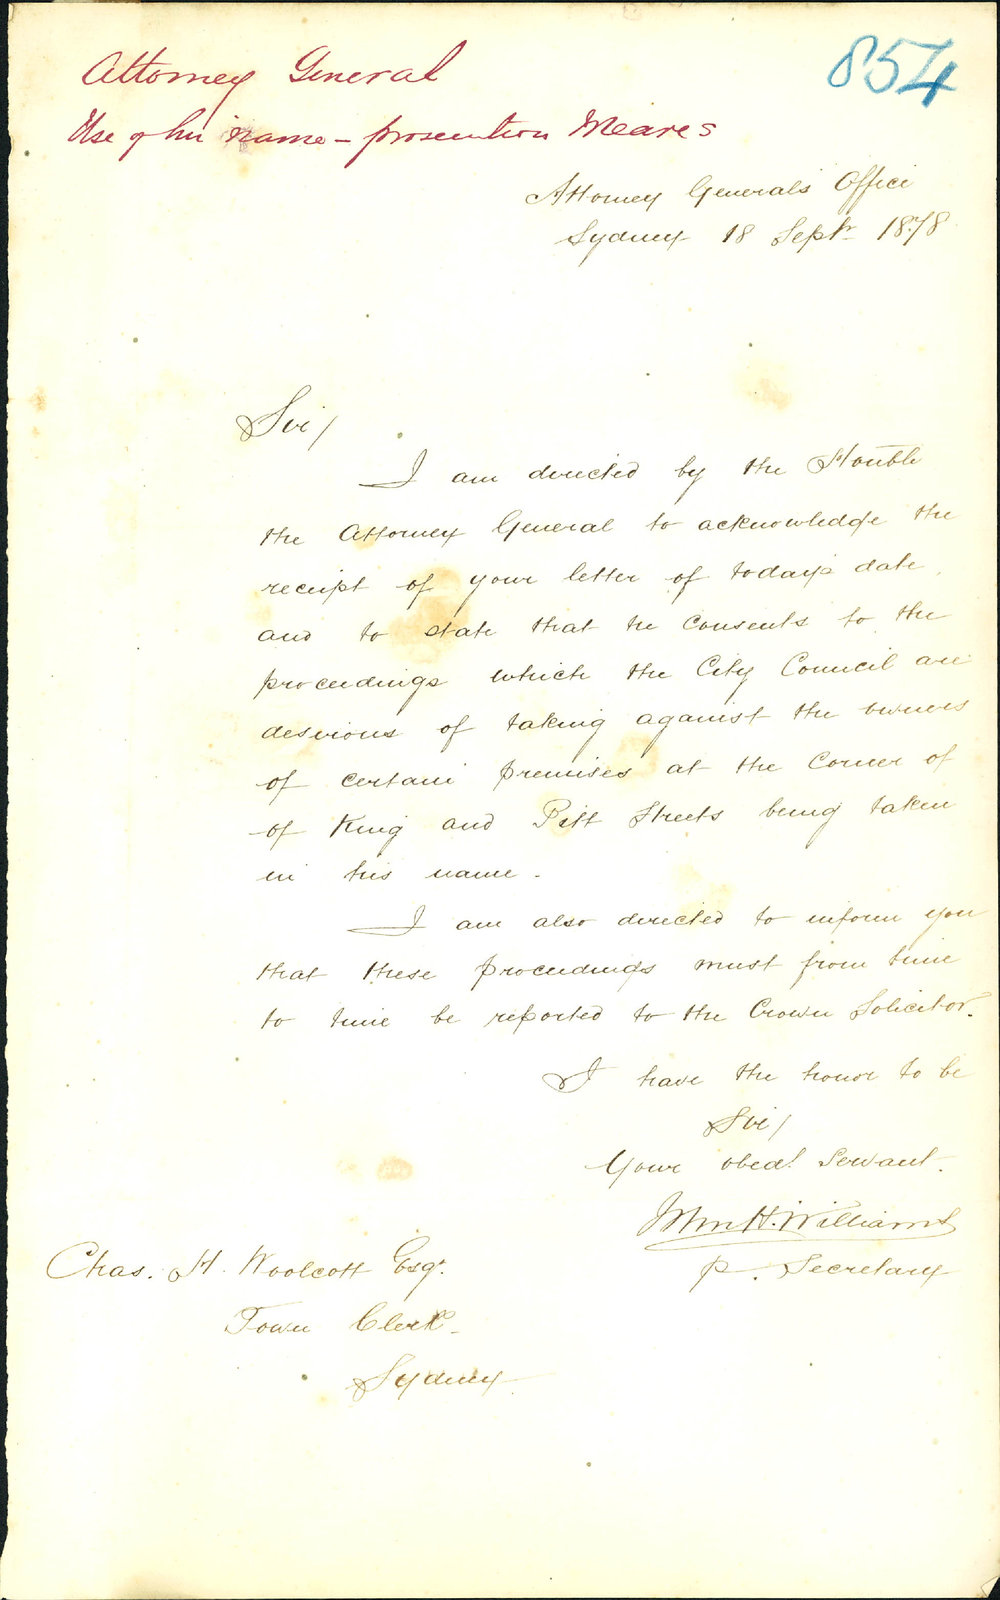 854
Attorney General
Use of his name - prosecution Meares
Attorney General's Office
Sydney 18 Sept 1878
Sir/
I am directed by the Honble
the Attorney General to acknowledge the
receipt of your letter of today's date
and to state that he consents to the
proceedings which the City Council are
desirous of taking against the owners
of certain premises at the corner of
of King and Pitt Streets being taken
in his name.
I am also directed to inform you
that these proceedings must from time
to time be reported to the Crown Solicitor.
I have the honor to be
Sir/
Your obedt Servant.
Wm H. Williams
p. Secretary
Chas. H. Woolcott Esqr.
Town Clerk
Sydney